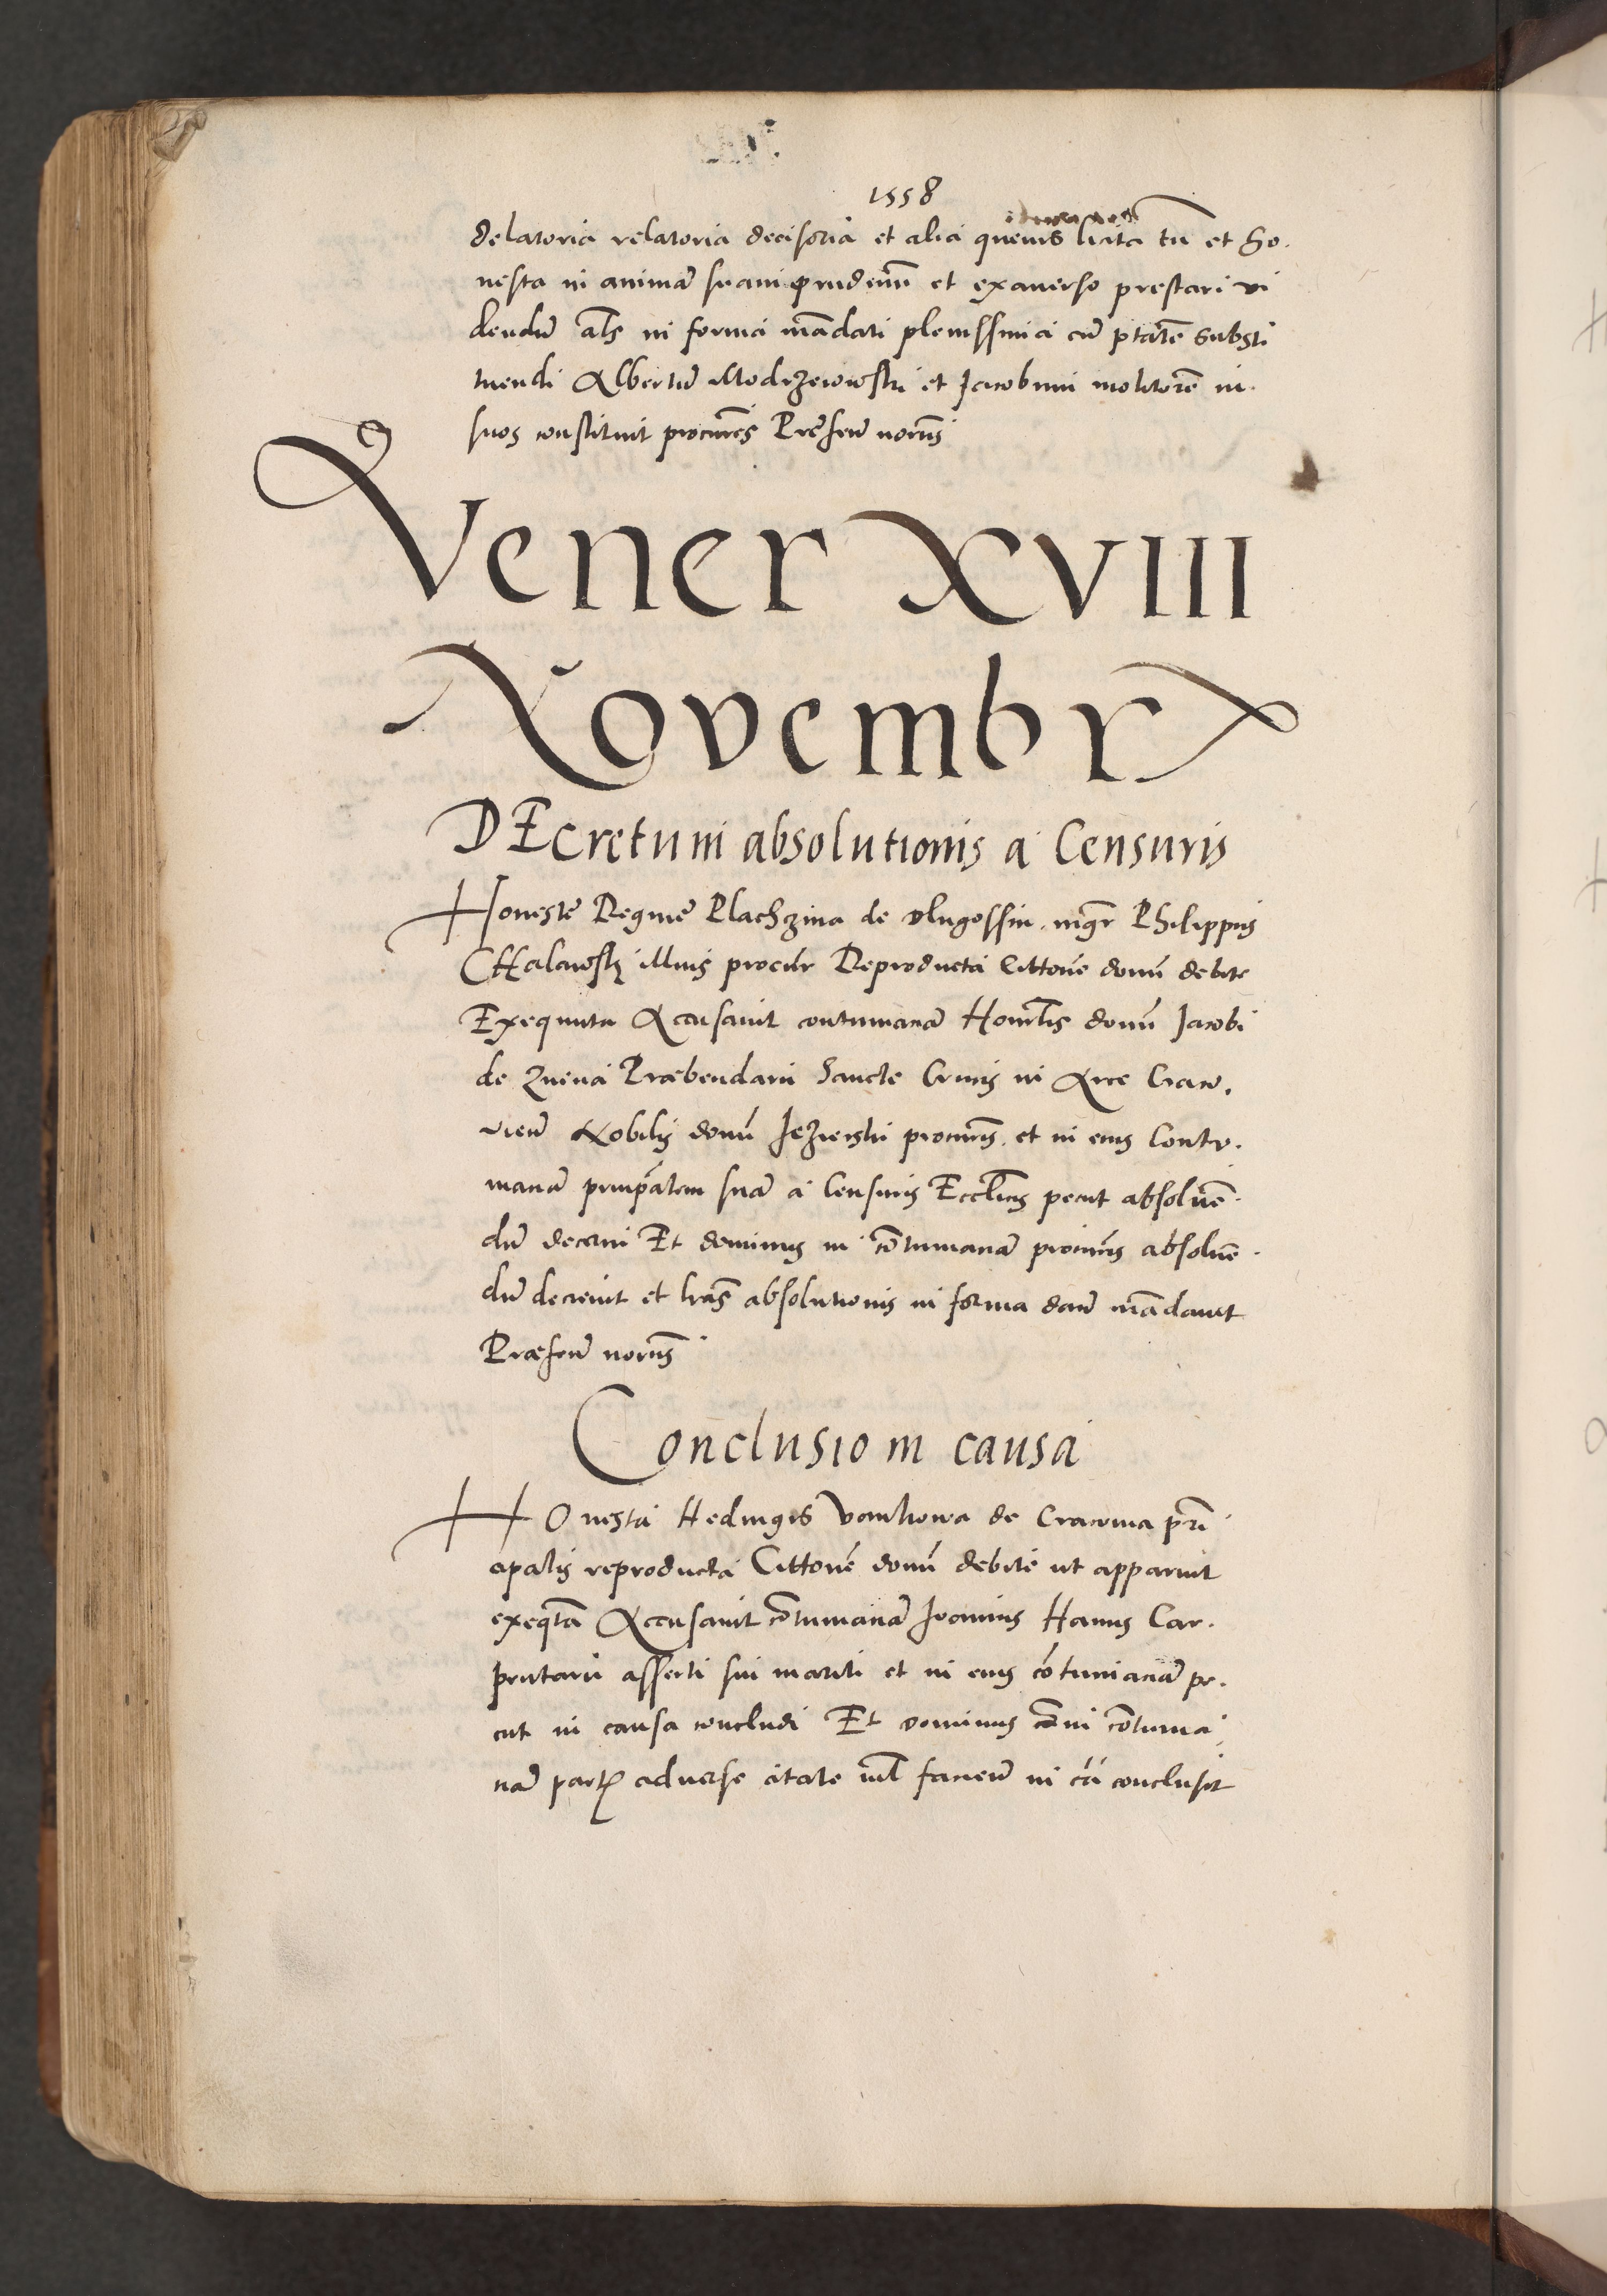 1558
delatoria relatoria decisoria et alia quevis licita tn̄ et ho.
nesta in animā suam prudenm̄ et exaverso prestari vi
dendū als̄ in forma mādati plenissima cū ptatē substi
tuendi Albertū Modrzewski et Jacobum molitorē in
suos constituit procures̄ Presen̄ notriis̄
Vener XVIII
Novembr
DEcretum absolutionis a Censuris
Honestē Regine Plachzina de Dlugossin. mgr Philippus
CHalawsky illius procūr Reproducta Cittone domū debite
Exequuta Accusavit contumaciā Honorlis̄ domū Jacobi
de Prebendarii Sancte Crucis in Arce Craco.
vien̄ Nobilis domū Jezierski procuris̄. et in eius Contu.
maciā principalem suā a Censuris Ecclicis̄ peciit absolvē.
dū decerni Et dominus in cōtumaciā procuris̄ absolvē.
dū decrevit et lrās absolutionis in forma dari mādavit
Præsen̄ notriis̄
Conclusio in causa
HOnesta Hedvigis de Cracovia prī
cipalis reproducta Cittonē domū debite ut apparuit
exeqtā Accusavit cōtumaciā Joannis Hanus Car.
pentarii asserti sui mariti et in eius cōtumaciā pe.
ciit in causa concludi Et dominus in cōtuma
ciā partis adverse citate nil facien̄ in cā conclusit